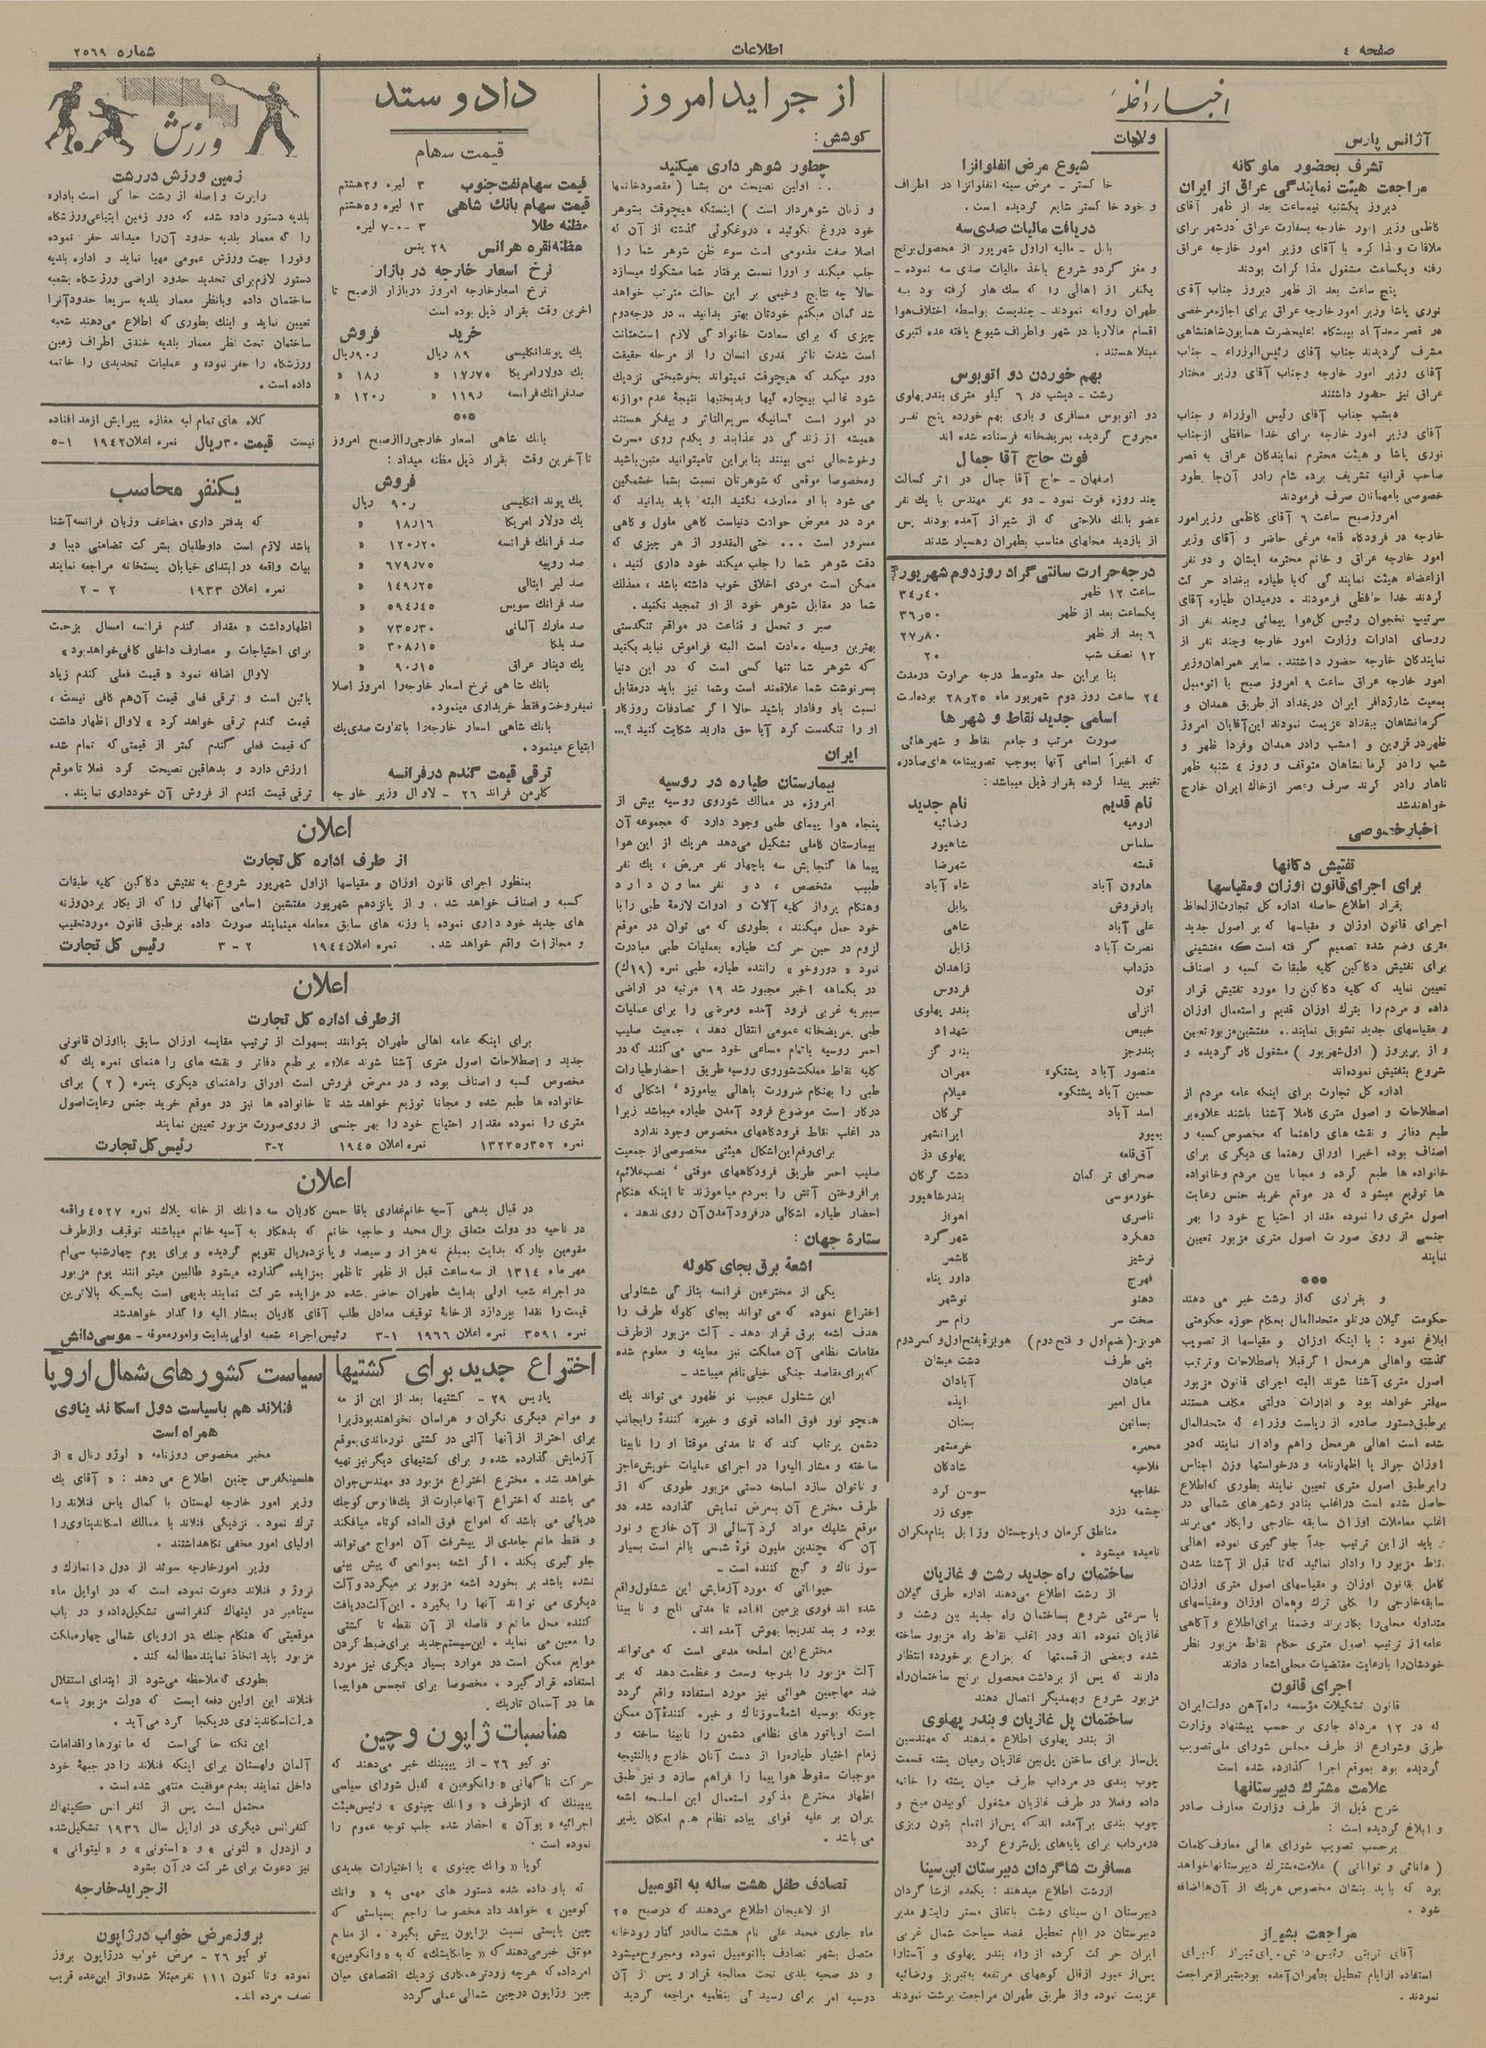 صفحه ٤
اطلاعات
شماره ٢٥٦٩
اخبار داخله
آژانس پارس
تشرف بحضور ملوکانه
مراجعت هیئت نمایندگی عراق از ایران
دیروز یکشنبه نیمساعت بعد از ظهر آقای
کاظمی وزیر امور خارجه بسفارت عراق درشهر برای
ملاقات ومذاکره با آقای وزیر امور خارجه عراق
رفته ویکساعت مشغول مذاکرات بودند
پنج ساعت بعد از ظهر دیروز جناب آقای
نوری پاشا وزیر امور خارجه عراق برای اجازه مرخصی
در قصر سعدآباد بپیشگاه اعلیحضرت همایون شاهنشاهی
مشرف گردیدند جناب آقای رئیس الوزراء - جناب
آقای وزیر امور خارجه وجناب آقای وزیر مختار
عراق نیز حضور داشتند
دیشب جناب آقای رئیس الوزراء و جناب
آقای وزیر امور خارجه برای خدا حافظی ازجناب
نوری پاشا و هیئت محترم نمایندگان عراق به قصر
صاحب قرانیه تشریف برده شام رادر آنجا بطور
خصوصی بامهمانان صرف فرمودند
امروزصبح ساعت ٦ آقای کاظمی وزیرامور
خارجه در فرودگاه قلعه مرغی حاضر و آقای وزیر
امور خارجه عراق و خانم محترمه ایشان و دو نفر
ازاعضاء هیئت نمایندگی که با طیاره ببغداد حرکت
کردند خدا حافظی فرمودند . درمیدان طیاره آقای
سرتیپ نخجوان رئیس کل هوا پیمائی وچند نفر از
روسای ادارات وزارت امور خارجه وچند نفر از
نمایندگان خارجه حضور داشتند . سایر همراهان وزیر
امور خارجه عراق ساعت ٩ امروز صبح با اتومبیل
بمعیت شارژدافر ایران دربغداد از طریق همدان و
کرمانشاهان ببغداد عزیمت نمودند این آقایان امروز
ظهردر قزوین و امشب رادر همدان وفردا ظهر و
شب رادر کرمانشاهان متوقف و روز ٤ شنبه ظهر
ناهار رادر کرند صرف وعصر ازخاک ایران خارج
خواهندشد
اخبار خصوصی
تفتیش دکانها
برای اجرای قانون اوزان ومقیاسها
بقرار اطلاع حاصله اداره کل تجارت از لحاظ
اجرای قانون اوزان و مقیاسها که بر اصول جدید
متری وضع شده تصمیم گرفته است که مفتشینی
برای تفتیش دکاکین کلیه طبقات کسبه و اصناف
تعیین نماید که کلیه دکاکین را مورد تفتیش قرار
داده و مردم را بترک اوزان قدیم و استعمال اوزان
و مقیاسهای جدید تشویق نمایند. مفتشین مزبور تعیین
و از پریروز ( اول شهریور ) مشغول کار گردیده و
شروع بتفتیش نموده‌اند
اداره کل تجارت برای اینکه عامه مردم از
اصطلاحات و اصول متری کاملا آشنا باشند علاوه بر
طبع دفاتر و نقشه های راهنما که مخصوص کسبه و
اصناف بوده اخیرا اوراق رهنمای دیگری برای
خانواده ها طبع کرده و مجانا بین مردم وخانواده
ها توزیع میشود که در موقع خرید جنس رعایت
اصول متری را نموده مقدار احتیاج خود را بهر
جنسی از روی صورت اصول متری مزبور تعیین
نمایند
***
و بقراری که از رشت خبر می دهند
حکومت گیلان درتلو متحدالمال بحکام حوزه حکومتی
ابلاغ نمود : با اینکه اوزان و مقیاسها از تصویب
گذشته واهالی هرمحل اگر قبلا باصطلاحات وترتیب
اصول متری آشنا شوند البته اجرای قانون مزبور
سهلتر خواهد بود و ادارات دولتی مکلف هستند
برطبق دستور صادره از ریاست وزراء که متحدالمال
شده است اهالی هرمحل راهم وادار نمایند که در
اوزان جواز یا اظهارنامه و درخواستها وزن اجناس
رابرطبق اصول متری تعیین نمایند بطوری که اطلاع
حاصل شده است دراغلب بنادر وشهرهای شمالی در
اغلب معاملات اوزان سابقه خارجی رابکار می برند
باید ازاین ترتیب جداً جلوگیری نموده اهالی
نقاط مزبور را وادار نمائید که تا قبل از آشنا شدن
کامل بقانون اوزان و مقیاسهای اصول متری اوزان
سابقه خارجی را بکلی ترک وهمان اوزان ومقیاسهای
متداوله محلی را بکار برند وضمنا برای اطلاع و آگاهی
عامه از ترتیب اصول متری حکام نقاط مزبور نظر
خودشان را بارعایت مقتضیات محلی اشعار دارند
اجرای قانون
قانون تشکیلات مؤسسه راه آهن دولت ایران
که در ١٢ مرداد جاری بر حسب پیشنهاد وزارت
طرق وشوارع از طرف مجلس شورای ملی تصویب
گردیده بود بموقع اجرا گذارده شده است
علامت مشترک دبیرستانها
شرح ذیل از طرف وزارت معارف صادر
و ابلاغ گردیده است :
برحسب تصویب شورای عالی معارف کلمات
( دانائی و توانائی ) علامت مشترک دبیرستانها خواهد
بود که باید بنشان مخصوص هریک از آن ها اضافه
شود .
مراجعت بشیراز
استفاده از ایام تعطیل بطهران آمده بود بشیراز مراجعت
نمودند .
ولایات
شیوع مرض انفلوانزا
خاکستر - مرض سینه انفلوانزا در اطراف
و خود خاکستر شایع گردیده است .
دریافت مالیات صدی سه
بابل - مالیه ازاول شهریور از محصول برنج
و مغز گردو شروع باخذ مالیات صدی سه نموده -
یکنفر از اهالی را که سگ هار گرفته بود به
طهران روانه نمودند - چندیست بواسطه اختلاف هوا
اقسام مالاریا در شهر واطراف شیوع یافته عده کثیری
مبتلا هستند .
بهم خوردن دو اتوبوس
رشت - دیشب در ٦ کیلو متری بندرپهلوی
دو اتوبوس مسافری و باری بهم خورده پنج نفر
مجروح گردیده بمریضخانه فرستاده شده اند
فوت حاج آقا جمال
اصفهان - حاج آقا جمال در اثر کسالت
چند روزه فوت نمود - دو نفر مهندس با یک نفر
عضو بانک فلاحتی که از شیراز آمده بودند پس
از بازدید محلهای مناسب بطهران رهسپار شدند
درجه حرارت سانتی گراد روز دوم شهریور ماه
ساعت ١٢ ظهر ٣٤٫٤٠
یکساعت بعد از ظهر ٣٦٫٥٠
٦ بعد از ظهر ٢٧٫٨٠
١٢ نصف شب ٢٠
بنا براین حد متوسط درجه حرارت درمدت
٢٤ ساعت روز دوم شهریور ماه ٢٨٫٢٥ بوده است
اسامی جدید نقاط و شهر ها
صورت مرتب و جامع نقاط و شهرهائی
که اخیراً اسامی آنها بموجب تصویبنامه های صادره
تغییر پیدا کرده بقرار ذیل میباشد :
نام قدیم نام جدید
ارومیه رضائیه
سلماس شاهپور
قمشه شهرضا
هارون آباد شاه آباد
بارفروش بابل
علی آباد شاهی
نصرت آباد زابل
دزداب زاهدان
تون فردوس
انزلی بندر پهلوی
خبیص شهداد
بندرجز بندر گز
منصور آباد پشتکوه مهران
حسین آباد پشتکوه عیلام
اسد آباد گرگان
بمپور ایرانشهر
آق قلعه پهلوی دز
صحرای ترکمان دشت گرگان
خورموسی بندرشاهپور
ناصری اهواز
دهکرد شهر گرد
ترشیز کاشمر
فهرج داور پناه
دهنو نوشهر
سخت سر رام سر
هویز-(ضم اول و فتح دوم) هویزه بفتح اول و کسر دوم
بنی طرف دشت میشان
عبادان آبادان
مال امیر ایذه
بساتین بستان
محمره خرمشهر
فلاحیه شادگان
خفاجیه سوسن گرد
چشمه دزد جوی زر
مناطق کرمان و بلوچستان وزابل بنام مکران
نامیده میشود .
ساختمان راه جدید رشت و غازیان
از رشت اطلاع می‌دهند اداره طرق گیلان
با سرعتی شروع بساختمان راه جدید بین رشت و
غازیان نموده اند ودر اغلب نقاط راه مزبور ساخته
شده وبعضی از قسمتها که بمزارع برخورده انتظار
دارند که پس از برداشت محصول برنج ساختمان راه
مزبور شروع وبهمدیگر اتصال دهند
ساختمان پل غازیان و بندر پهلوی
از بندر پهلوی اطلاع میدهند که مهندسین
پل‌ساز برای ساختن پل بین غازیان ومیان پشته قسمت
چوب بندی در مرداب طرف میان پشته را خاتمه
داده وفعلا در طرف غازیان مشغول کوبیدن میخ و
چوب بندی برآمده اند که پس از اتمام بتون ریزی
درمرداب برای پایه‌های پل شروع گردد
مسافرت شاگردان دبیرستان ابن سینا
ازرشت اطلاع میدهند : یکعده ازشاگردان
دبیرستان ابن سینای رشت باتفاق مستر رایت و مدیر
دبیرستان در ایام تعطیل قصد سیاحت شمال غربی
ایران حرکت کرده از راه بندر پهلوی و آستارا
پس از عبور ازقلل کوههای مرتفعه به تبریز ورضائیه
عزیمت نموده واز طریق طهران مراجعت برشت نمودند
از جراید امروز
کوشش :
چطور شوهر داری میکنید
. . اولین نصیحت من بشما ( مقصودخانمها
و زنان شوهردار است ) اینستکه هیچوقت بشوهر
خود دروغ نگوئید ، دروغگوئی گذشته از آن که
اصلا صفت مذمومی است سوء ظن شوهر شما را
جلب میکند و اورا نسبت برفتار شما مشکوک میسازد
حالا چه نتایج وخیمی بر این حالت مترتب خواهد
شد گمان میکنم خودتان بهتر بدانید .. در درجه دوم
چیزی که برای سعادت خانوادگی لازم است متانت
است شدت تاثر بقدری انسان را از مرحله حقیقت
دور میکند که هیچوقت نمیتواند بخوشبختی نزدیک
شود غالب بیچاره گیها وبدبختیها نتیجه عدم موازنه
در امور است کسانیکه سریع التاثر و بیفکر هستند
همیشه از زندگی در عذابند و یکدم روی مسرت
وخوشحالی نمی بینند بنابراین تامیتوانید متین باشید
ومخصوصا موقعی که شوهرتان نسبت بشما خشمگین
می شود با او معارضه نکنید البته باید بدانید که
مرد در معرض حوادث دنیاست گاهی ملول و گاهی
مسرور است ... حتی المقدور از هر چیزی که
دقت شوهر شما را جلب میکند خود داری کنید ،
ممکن است مردی اخلاق خوب داشته باشد ، معذلک
شما در مقابل شوهر خود از او تمجید نکنید .
صبر و تحمل و قناعت در مواقع تنگدستی
بهترین وسیله سعادت است البته فراموش نباید بکنید
که شوهر شما تنها کسی است که در این دنیا
بسرنوشت شما علاقمند است وشما نیز باید درمقابل
نسبت باو وفادار باشید حالا اگر تصادفات روزگار
او را تنگدست کرد آیا حق دارید شکایت کنید ؟...
ایران
بیمارستان طیاره در روسیه
امروزه در ممالک شوروی روسیه بیش از
پنجاه هوا پیمای طبی وجود دارد که مجموعه آن
بیمارستان کاملی تشکیل می‌دهد هریک از این هوا
پیما ها گنجایش سه یاچهار نفر مریض ، یک نفر
طبیب متخصص ، دو نفر معاون دارد
وهنگام پرواز کلیه آلات و ادوات لازمهٔ طبی رابا
خود حمل میکنند ، بطوری که می توان در موقع
لزوم در حین حرکت طیاره بعملیات طبی مبادرت
نمود « دوروخو » راننده طیاره طبی نمره (١٩ک)
در یکماهه اخیر مجبور شد ١٩ مرتبه در اراضی
سیبریه غربی فرود آمده ومرضی را برای عملیات
طبی بمریضخانه عمومی انتقال دهد ، جمعیت صلیب
احمر روسیه باتمام مساعی خود سعی می کنند که در
کلیه نقاط مملکت شوروی روسیه طریق احضار طیارات
طبی را بهنگام ضرورت باهالی بیاموزد ، اشکالی که
درکار است موضوع فرود آمدن طیاره میباشد زیرا
در اغلب نقاط فرودگاههای مخصوص وجود ندارد
برای رفع این اشکال هیئتی مخصوصی از جمعیت
صلیب احمر طریق فرودگاههای موقتی ، نصب علائم،
برافروختن آتش را بمردم میاموزند تا اینکه هنگام
احضار طیاره اشکالی درفرود آمدن آن روی ندهد .
ستارهٔ جهان :
اشعهٔ برق بجای گلوله
یکی از مخترعین فرانسه بتازگی ششلولی
اختراع نموده که می تواند بجای گلوله طرف را
هدف اشعه برق قرار دهد - آلت مزبور ازطرف
مقامات نظامی آن مملکت نیز معاینه و معلوم شده
که برای مقاصد جنگی خیلی نافع میباشد .
این ششلول عجیب نو ظهور می تواند یک
همچو نور فوق العاده قوی و خیره کنندهٔ رابجانب
دشمن پرتاب کند که تا مدتی موقتا او را نابینا
ساخته و مشار الیه را در اجرای عملیات خویش عاجز
و ناتوان سازد اسلحه دستی مزبور طوری که از
طرف مخترع آن بمعرض نمایش گذارده شده در
موقع شلیک مواد گرد آسائی از آن خارج و نور
آن که چندین ملیون قوهٔ شمعی بالغ است بسیار
سوزناک و گیج کننده است .
حیواناتی که مورد آزمایش این ششلول واقع
شده اند فوری بزمین افتاده تا مدتی فلج و نا بینا
بوده و بعد تدریجا بهوش آمده اند .
مخترع این اسلحه مدعی است که می‌تواند
آلت مزبور را بدرجه وسعت و عظمت دهد که بر
ضد مهاجمین هوائی نیز مورد استفاده واقع گردد
چونکه بوسیله اشعهٔ سوزناک و خیره کنندهٔ آن ممکن
است اویاتور های نظامی دشمن را نابینا ساخته و
زمام اختیار طیاره را از دست آنان خارج وبالنتیجه
موجبات سقوط هوا پیما را فراهم سازد و نیز طبق
اظهار مخترع مذکور استعمال این اسلحه اشعه
پران بر علیه قوای پیاده نظام هم امکان پذیر
می باشد .
تصادف طفل هشت ساله به اتومبیل
از لاهیجان اطلاع می‌دهند که درصبح ٢٥
ماه جاری محمد علی نام هشت ساله درکنار رودخانه
متصل بشهر تصادف بااتومبیل نموده ومجروح میشود
و در صحیه بلدی تحت معالجه قرار و پس از آن
دوسیه امر برای رسیدگی بنظمیه مراجعه گردید
داد و ستد
قیمت سهام
قیمت سهام نفت جنوب ٣ لیره و٣ هشتم
قیمت سهام بانک شاهی ١٣ لیره و٥ هشتم
مظنه طلا ٣ -٠-٧ لیره
مظنه نقره هرانس ٢٩ پنس
نرخ اسعار خارجه در بازار
نرخ اسعارخارجه امروز دربازار ازصبح تا
آخرین وقت بقرار ذیل بوده است
خرید فروش
یک پوندانگلیسی ٨٩ ریال ٩٠٫ریال
یک دولارامریکا ١٧٫٧٥ « ١٨٫ «
صدفرانک فرانسه ١١٩٫ « ١٢٠٫ «
***
بانک شاهی اسعار خارجی راازصبح امروز
تا آخرین وقت بقرار ذیل مظنه میداد :
فروش
یک پوند انگلیسی ٩٠٫ ریال
یک دولار امریکا ١٨٫١٦ «
صد فرانک فرانسه ١٢٠٫٢٠ «
صد روپیه ٦٧٩٫٧٥ «
صد لیر ایتالی ١٤٩٫٢٥ «
صد فرانک سویس ٥٩٤٫٤٥ «
صد مارک آلمانی ٧٣٥٫٣٠ «
صد بلگا ٣٠٨٫١٥ «
یک دینار عراق ٩٠٫١٥ «
بانک شاهی نرخ اسعار خارجه را امروز اصلا
نمیفروخت وفقط خریداری مینمود.
بانک شاهی اسعار خارجه را باتفاوت صدی یک
ابتیاع مینمود .
ترقی قیمت گندم درفرانسه
کلرمن فراند ٢٦ - لاوال وزیر خارجه
اظهارداشت « مقدار گندم فرانسه امسال بزحمت
برای احتیاجات و مصارف داخلی کافی خواهد بود »
لاوال اضافه نمود « قیمت فعلی گندم زیاد
پائین است و ترقی فعلی قیمت آن هم کافی نیست ،
قیمت گندم ترقی خواهد کرد » لاوال اظهار داشت
که قیمت فعلی گندم کمتر از قیمتی که تمام شده
ارزش دارد و بدهاقین نصیحت کرد فعلا تا موقع
ترقی قیمت گندم از فروش آن خودداری نمایند .
ورزش
زمین ورزش دررشت
راپرت واصله از رشت حاکی است باداره
بلدیه دستور داده شده که دور زمین ابتیاعی ورزشگاه
را که معمار بلدیه حدود آن را میداند حفر نموده
وفورا جهت ورزش عمومی مهیا نماید و اداره بلدیه
دستور لازم برای تحدید حدود اراضی ورزشگاه بشعبه
ساختمان داده وبانظر معمار بلدیه سریعا حدود آنرا
تعیین نماید و اینک بطوری که اطلاع می‌دهند شعبه
ساختمان تحت نظر معمار بلدیه خندق اطراف زمین
ورزشگاه را حفر نموده و عملیات تحدیدی را خاتمه
داده است .
کلاه های تمام لبه مغازه پیرایش ازمد افتاده
نیست قیمت ٣٠ ریال نمره اعلان ١٩٤٢ ١-٥
یکنفر محاسب
که بدفتر داری مضاعف وزبان فرانسه آشنا
باشد لازم است داوطلبان بشرکت تضامنی دیبا و
بیات واقعه در ابتدای خیابان پستخانه مراجعه نمایند
نمره اعلان ١٩٣٣ ٢ - ٢
اعلان
از طرف اداره کل تجارت
بمنظور اجرای قانون اوزان و مقیاسها ازاول شهریور شروع به تفتیش دکاکین کلیه طبقات
کسبه و اصناف خواهد شد ، و از پانزدهم شهریور مفتشین اسامی آنهائی را که از بکار بردن وزنه
های جدید خود داری نموده با وزنه های سابق معامله مینمایند صورت داده برطبق قانون موردتعقیب
و مجازات واقع خواهد شد. نمره اعلان ١٩٤٤ ٢ - ٣ رئیس کل تجارت
اعلان
ازطرف اداره کل تجارت
برای اینکه عامه اهالی طهران بتوانند بسهولت از ترتیب مقایسه اوزان سابق بااوزان قانونی
جدید و اصطلاحات اصول متری آشنا شوند علاوه بر طبع دفاتر و نقشه های راهنمای نمره یک که
مخصوص کسبه و اصناف بوده و در معرض فروش است اوراق راهنمای دیگری بنمره ( ٢ ) برای
خانواده ها طبع شده و مجانا توزیع خواهد شد تا خانواده ها نیز در موقع خرید جنس رعایت اصول
متری را نموده مقدار احتیاج خود را بهر جنسی از روی صورت مزبور تعیین نمایند
نمره ١٣٢٢٥٫٣٥٢ نمره اعلان ١٩٤٥ ٢-٣ رئیس کل تجارت
اعلان
در قبال بدهی آسیه خانم غفاری بآقا حسن کاویان سه دانک از خانه پلاک نمره ٤٥٢٧ واقعه
در ناحیه دو دولت متعلق بزال محمد و حاجیه خانم که بدهکار به آسیه خانم میباشند توقیف وازطرف
مقومین بیار که بدایت بمبلغ نه هزار و سیصد و پانزده ریال تقویم گردیده و برای یوم چهارشنبه سی‌ام
مهر ماه ١٣١٤ از سه ساعت قبل از ظهر تاظهر بمزایده گذارده میشود طالبین میتوانند یوم مزبور
در اجراء شعبه اولی بدایت طهران حاضر شده در مزایده شرکت نمایند بدیهی است بکسیکه بالاترین
قیمت را نقدا بپردازد ازخانهٔ توقیف معادل طلب آقای کاویان بمشار الیه واگذار خواهد شد
نمره ٣٥٩١ نمره اعلان ١٩٦٦ ١-٣ رئیس اجراء شعبه اولی بدایت وامور معوقه - موسی دانش
اختراع جدید برای کشتیها
پاریس ٢٩ - کشتیها بعد از این از مه
و موانع دیگری نگران و هراسان نخواهند بود زیرا
برای احتراز از آنها آلتی در کشتی نورماندی بموقع
آزمایش گذارده شده و برای کشتیهای دیگر نیز تهیه
خواهد شد . مخترع اختراع مزبور دو مهندس جوان
می باشند که اختراع آنها عبارت از یک فانوس کوچک
دریائی می باشد که امواج فوق العاده کوتاه میافکند
و فقط مانع جامدی از پیشرفت آن امواج می‌تواند
جلوگیری بکند . اگر اشعه بموانعی که پیش بینی
نشده باشد بر بخورد اشعه مزبور بر میگردد و آلت
دیگری می تواند آنها را بگیرد . این آلت دریافت
کننده محل مانع و فاصله از آن نقطه تا کشتی
را معین می نماید . این سیستم جدید برای ضبط کردن
موانع ممکن است در موارد بسیار دیگری نیز مورد
استفاده قرار گیرد . مخصوصا برای تجسس هواپیما
ها در آسمان تاریک .
مناسبات ژاپون و چین
توکیو ٢٦ - از پیپینک خبر می‌دهند که
حرکت ناگهانی « وانکومین » کفیل شورای سیاسی
پیپینک که ازطرف « وانک چینوی » رئیس هیئت
اجرائیه « یوآن » احضار شده جلب توجه عموم را
نموده است .
گویا « وانک چینوی » با اختیارات جدیدی
که باو داده شده دستور های مهمی به « وانک
کومین » خواهد داد مخصوصا راجع بسیاستی که
چین بایستی نسبت بژاپون پیش بگیرد . از منابع
موثق خبر می‌دهند که « چانکایشک » که به « وانکومین»
امرداده که هرچه زودتر همکاری نزدیک اقتصادی میان
چین وژاپون درچین شمالی عملی گردد
سیاست کشورهای شمال اروپا
فنلاند هم باسیاست دول اسکاندیناوی
همراه است
مخبر مخصوص روزنامه « لوژورنال » از
هلسینکفرس چنین اطلاع می‌دهد : « آقای بک
وزیر امور خارجه لهستان با کمال یاس فنلاند را
ترک نمود . نزدیکی فنلاند با ممالک اسکاندیناوی را
اولیای امور مخفی نگاهداشتند .
وزیر امورخارجه سوئد از دول دانمارک و
نروژ و فنلاند دعوت نموده است که در اوایل ماه
سپتامبر در اینهاک کنفرانسی تشکیل داده و در باب
موقعیتی که هنگام جنک در اروپای شمالی چهار مملکت
مزبور باید اتخاذ نمایند مطالعه کند .
بطوری که ملاحظه می‌شود از ابتدای استقلال
فنلاند این اولین دفعه ایست که دولت مزبور باسه
دولت اسکاندیناوی دریکجا گرد می‌آید .
این نکته حاکی است که مانورها واقدامات
آلمان ولهستان برای اینکه فنلاند را در جبههٔ خود
داخل نمایند بعدم موفقیت منتهی شده است .
محتمل است پس از کنفرانس کپنهاک
کنفرانس دیگری در آوریل سال ١٩٣٦ تشکیل شده
و ازدول « لتونی » و « استونی » و « لیتوانی »
نیز دعوت برای شرکت درآن بشود
ازجراید خارجه
بروز مرض خواب درژاپون
توکیو ٢٦ - مرض خواب درژاپون بروز
نموده وتا کنون ١١١ نفر مبتلا شده واز این عده قریب
نصف مرده اند .